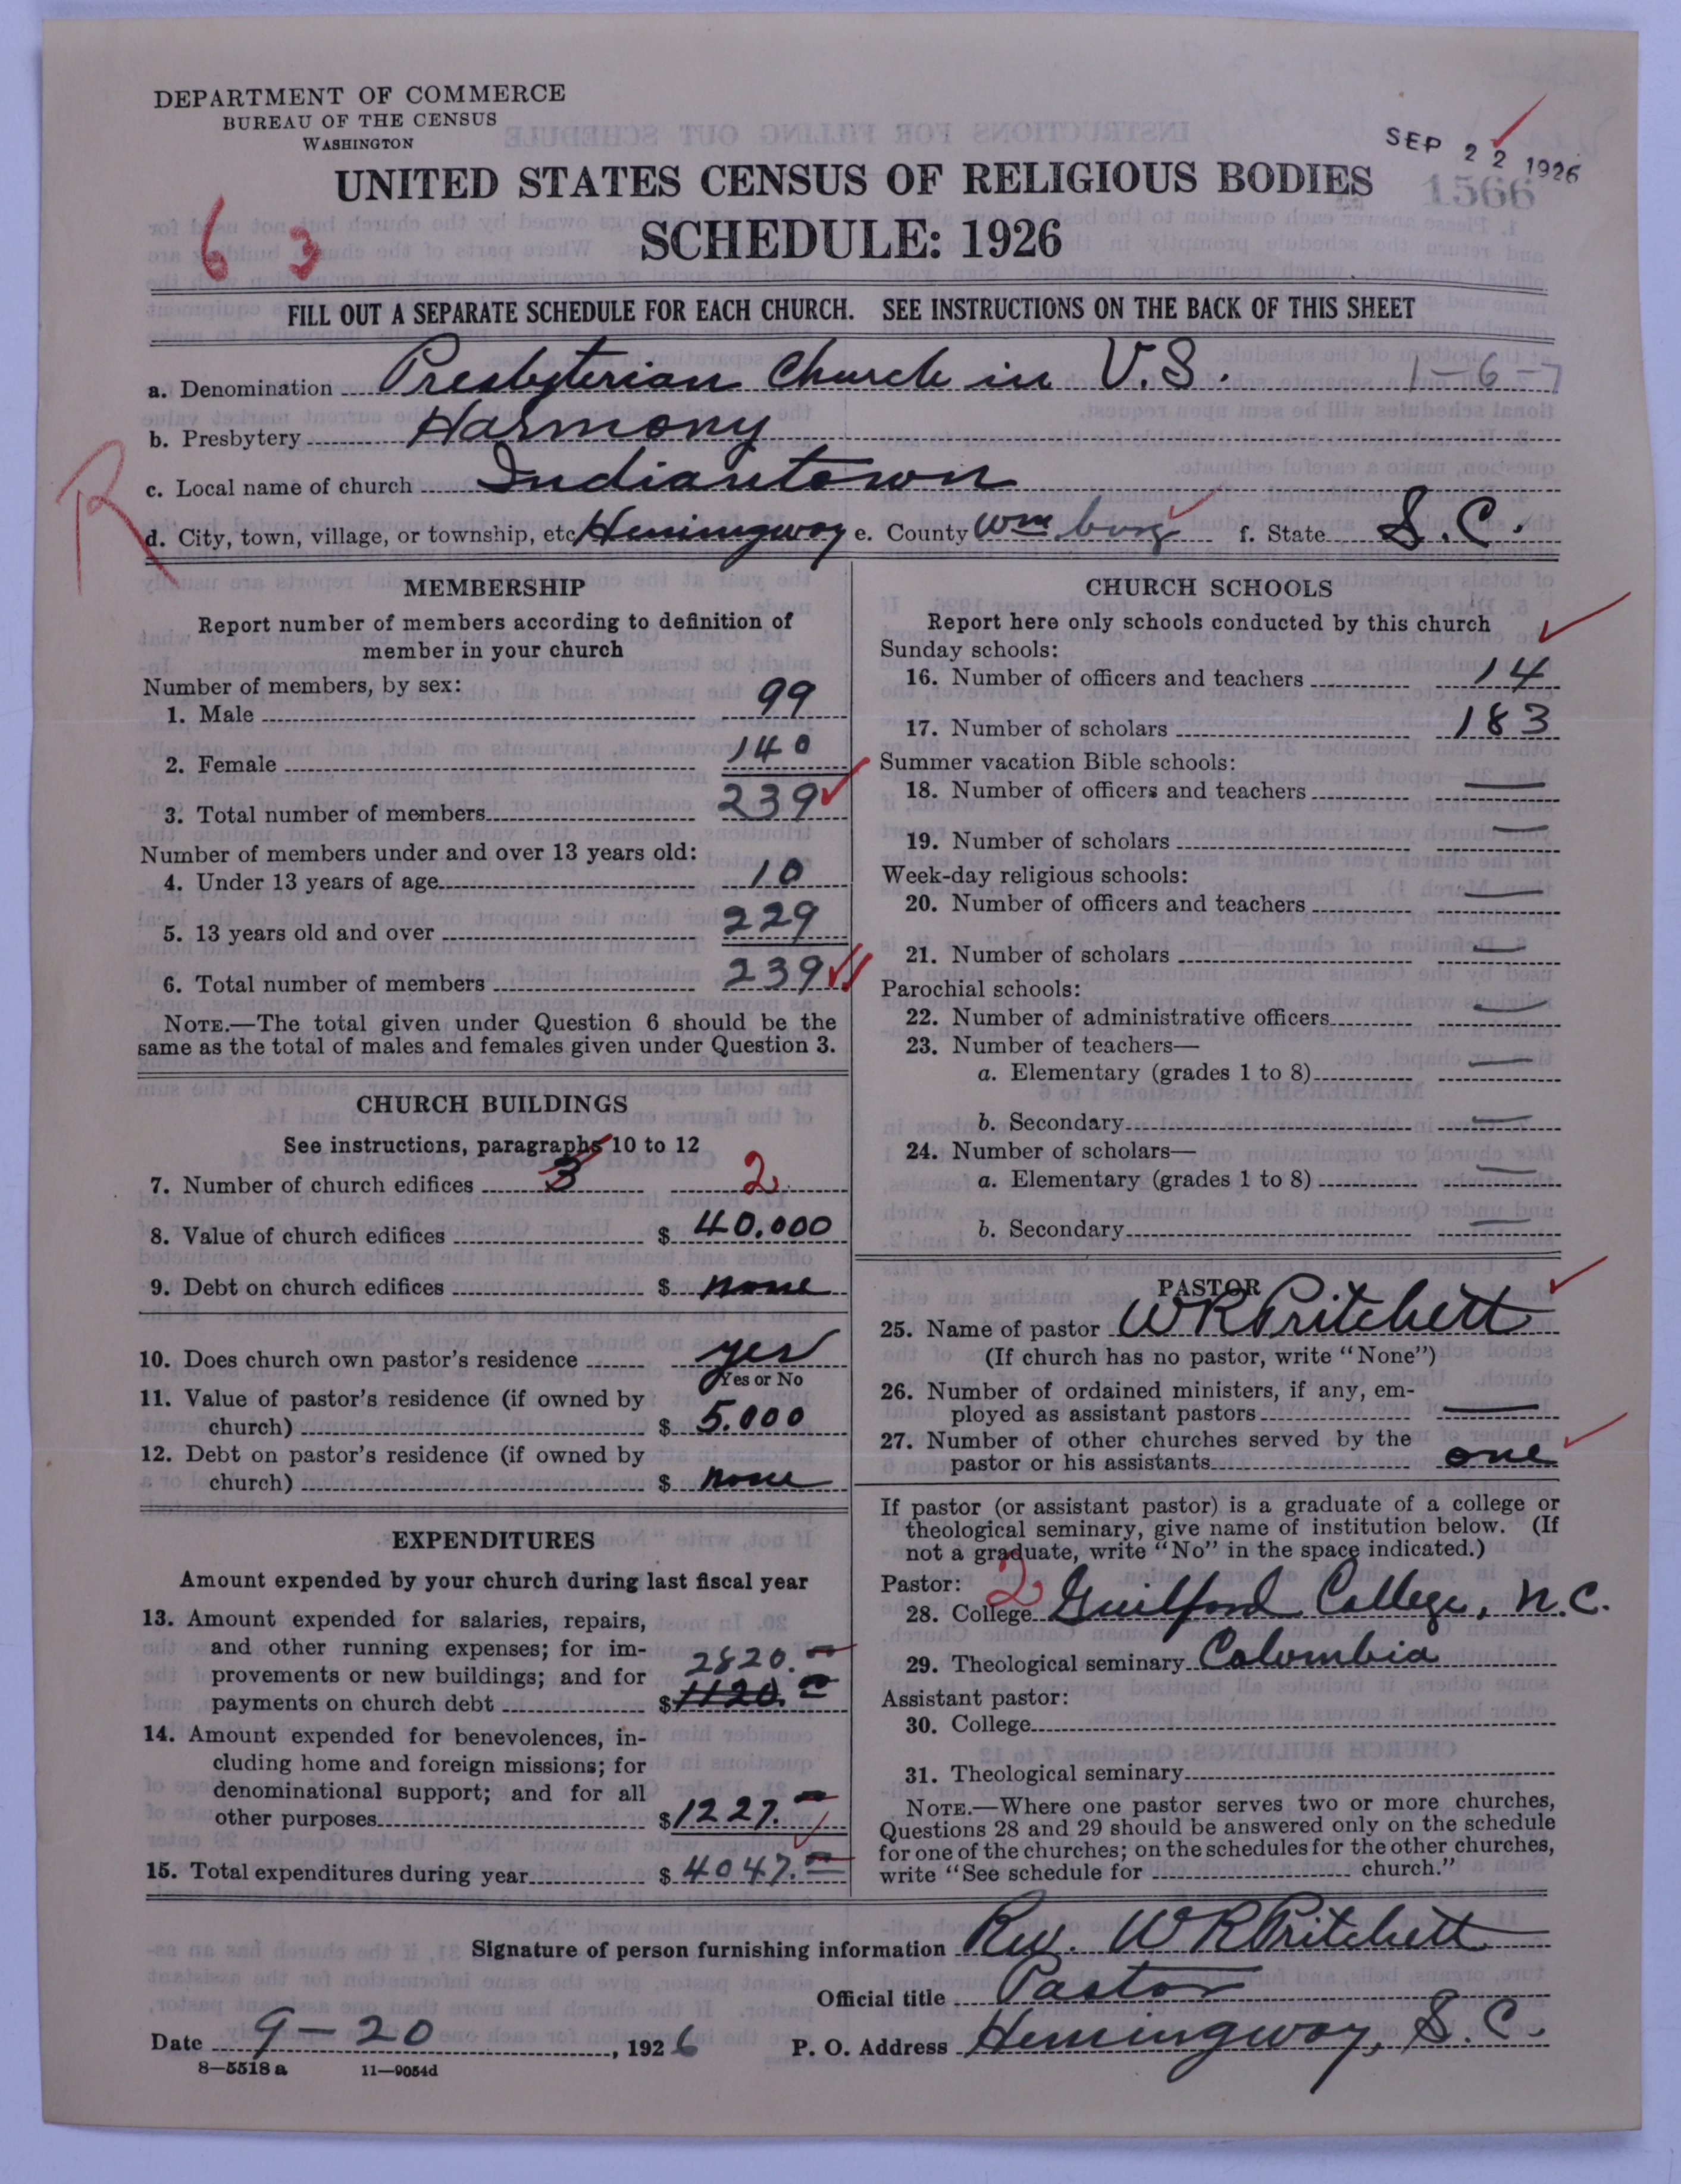 DEPARTMENT OF COMMERCE
BUREAU OF THE CENSUS
WASHINGTON
SEP 22 1926
1566
UNITED STATES CENSUS OF RELIGIOUS BODIES
SCHEDULE: 1926
6 3
FILL OUT A SEPARATE SCHEDULE FOR EACH CHURCH. SEE INSTRUCTIONS ON THE BACK OF THIS SHEET
a. Denomination Presbyterian Church in U.S. 1-6-7
b. Presbytery Harmony
c. Local name of church Indiantown
R
d. City, town, village, or township, etc Hemingway e. County Wmburg f. State S.C.
MEMBERSHIP
Report number of members according to definition of
member in your church
Number of members, by sex:
1. Male 99
2. Female 140
3. Total number of members 239
Number of members under and over 13 years old:
4. Under 13 years of age 10
5. 13 years old and over 229
6. Total number of members 239
NOTE.—The total given under Question 6 should be the
same as the total of males and females given under Question 3.
CHURCH BUILDINGS
See instructions, paragraphs 10 to 12
7. Number of church edifices 3 2
8. Value of church edifices $ 40.000
9. Debt on church edifices $ none
10. Does church own pastor's residence yes
Yes or No
11. Value of pastor's residence (if owned by
church) $ 5.000
12. Debt on pastor's residence (if owned by
church) $ none
EXPENDITURES
Amount expended by your church during last fiscal year
13. Amount expended for salaries, repairs,
and other running expenses; for im-
provements or new buildings; and for 2820.—
payments on church debt $ 1120.—
14. Amount expended for benevolences, in-
cluding home and foreign missions; for
denominational support; and for all
other purposes $ 1227.—
15. Total expenditures during year $ 4047.—
CHURCH SCHOOLS
Report here only schools conducted by this church
Sunday schools:
16. Number of officers and teachers 14
17. Number of scholars 183
Summer vacation Bible schools:
18. Number of officers and teachers —
19. Number of scholars —
Week-day religious schools:
20. Number of officers and teachers —
21. Number of scholars —
Parochial schools:
22. Number of administrative officers —
23. Number of teachers—
a. Elementary (grades 1 to 8) —
b. Secondary —
24. Number of scholars—
a. Elementary (grades 1 to 8) —
b. Secondary —
PASTOR
25. Name of pastor W R Pritchett
(If church has no pastor, write "None")
26. Number of ordained ministers, if any, em-
ployed as assistant pastors —
27. Number of other churches served by the
pastor or his assistants one
If pastor (or assistant pastor) is a graduate of a college or
theological seminary, give name of institution below. (If
not a graduate, write "No" in the space indicated.)
Pastor: 2
28. College Guilford College, N.C.
29. Theological seminary Colombia
Assistant pastor:
30. College
31. Theological seminary
NOTE.—Where one pastor serves two or more churches,
Questions 28 and 29 should be answered only on the schedule
for one of the churches; on the schedules for the other churches,
write "See schedule for church."
Signature of person furnishing information Rev. W R Pritchett
Official title Pastor
Date 9-20, 1926 P. O. Address Hemingway, S.C.
8—5518 a 11—9054d